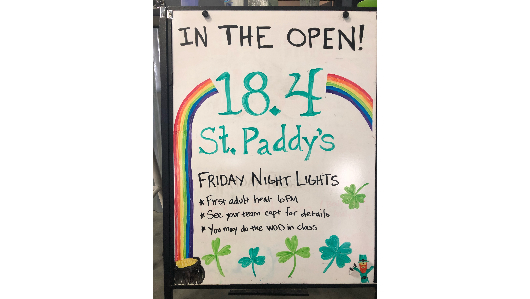 IN THE OPEN!
18.4
St. Paddy's
FRIDAY NIGHT LIGHTS
* First adult heat 6PM
* See your team capt for details
* You may do the WOD in class